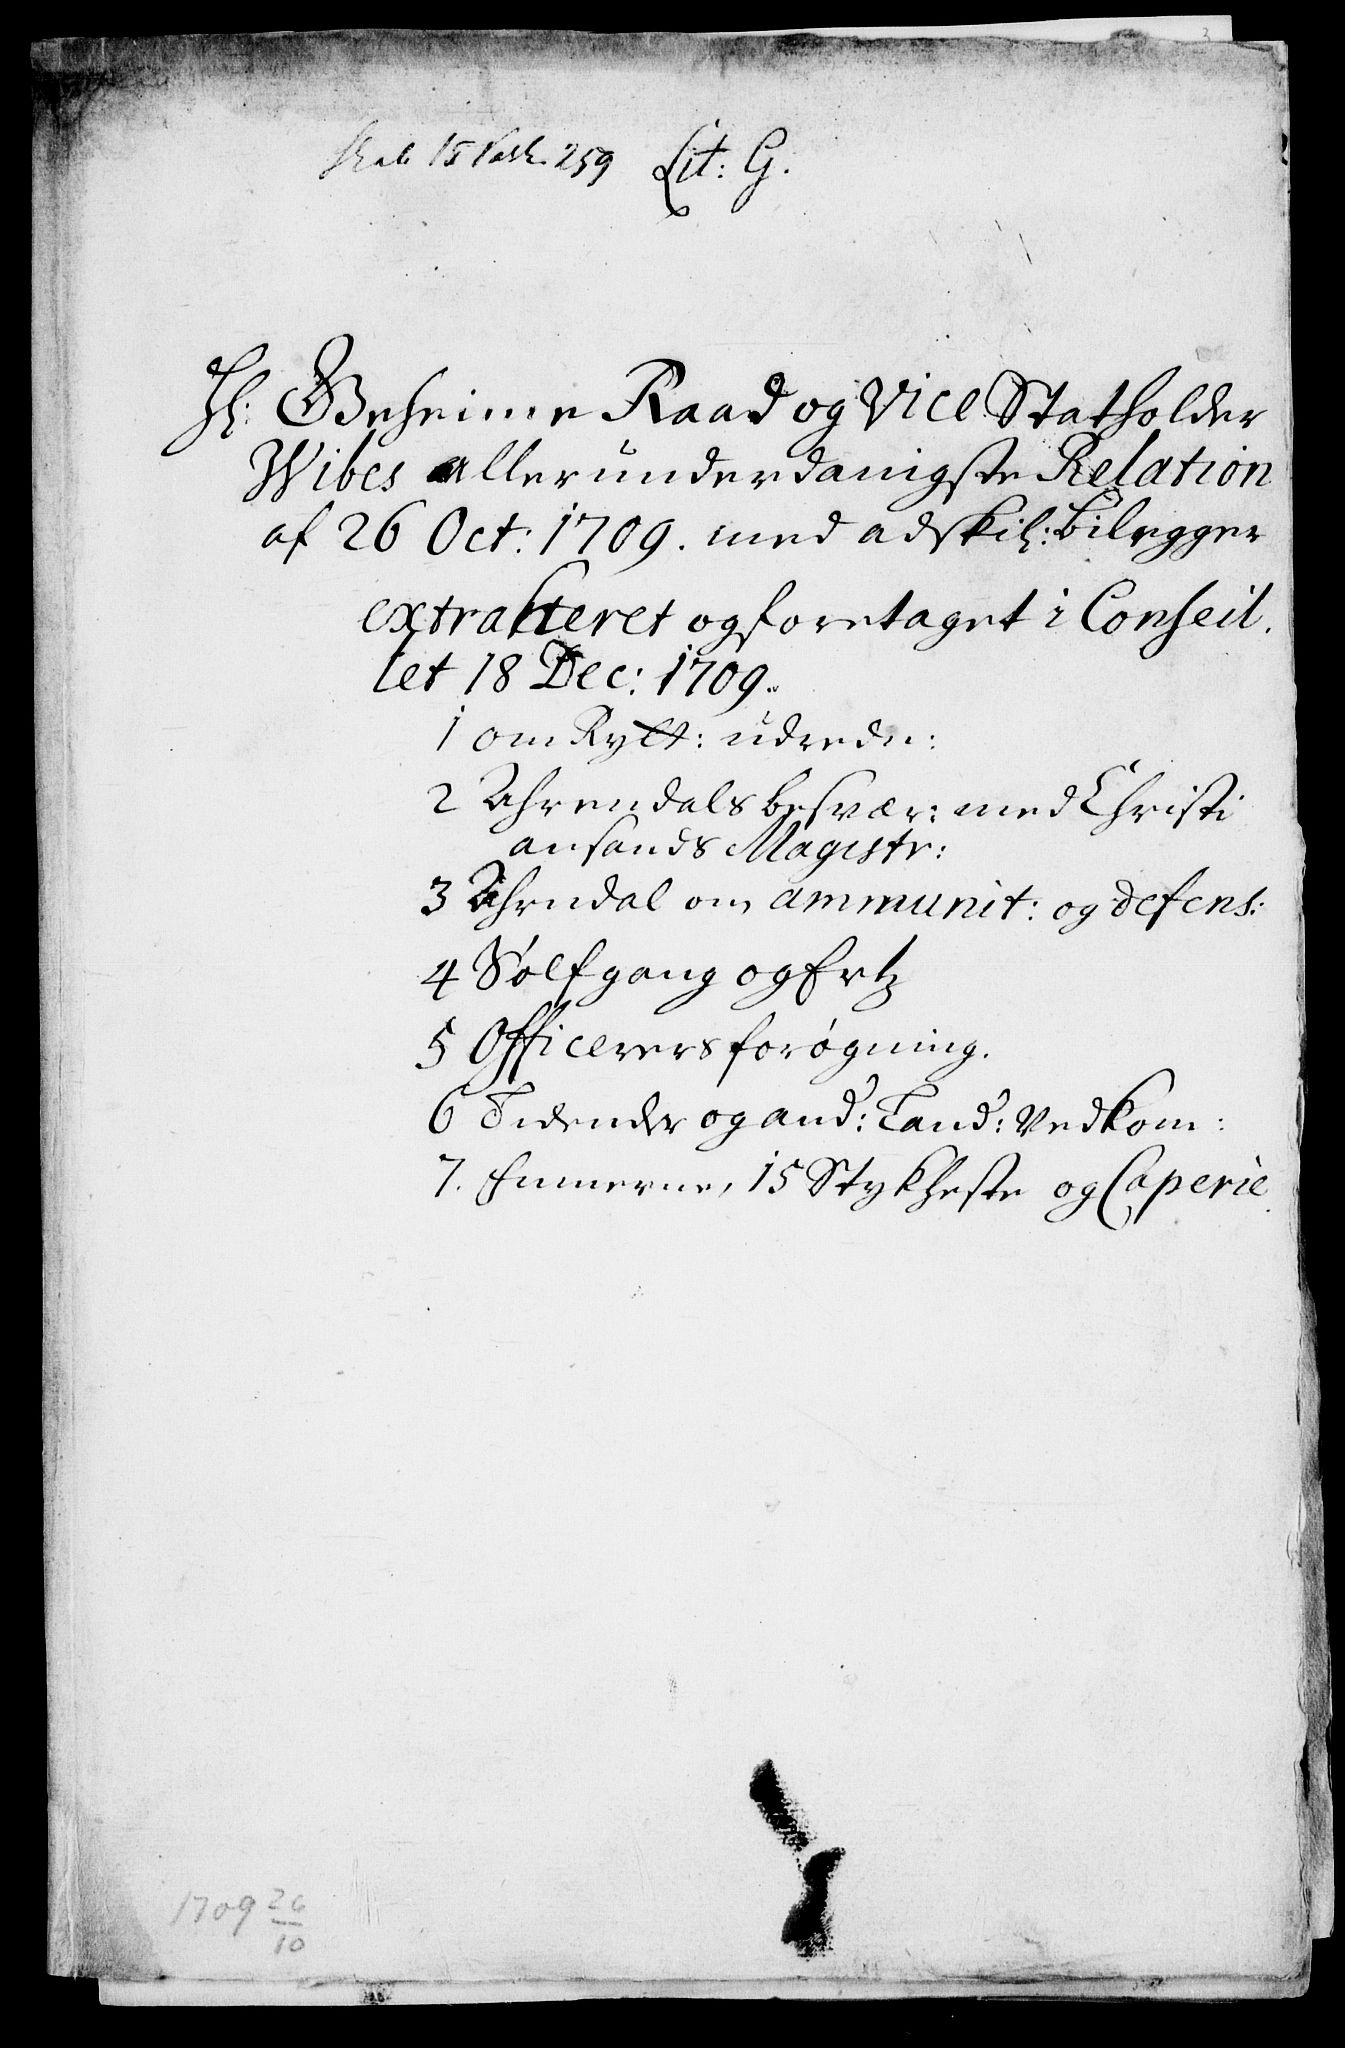 3
Skab 15 Pakk. 259 Lit: G.
Hl: Geheime Raad og Vice Statholder
Wibes allerunderdanigste Relation
af 26 Oct: 1709. med adskil: bilegger
extraheret og foretaget i Conseil.
let 18 Dec: 1709.
1 om Rytt: udrede:
2 Ahrendals besvær: med Christi
ansands Magistr:
3 Ahrndal om ammunit: og defens:
4 Sølfgang og Ertz
5 Officerers forøgning.
6 Tidender og and: Land: Vedkom:
7. 15 Stykheste og Caperie.
1709 26
10